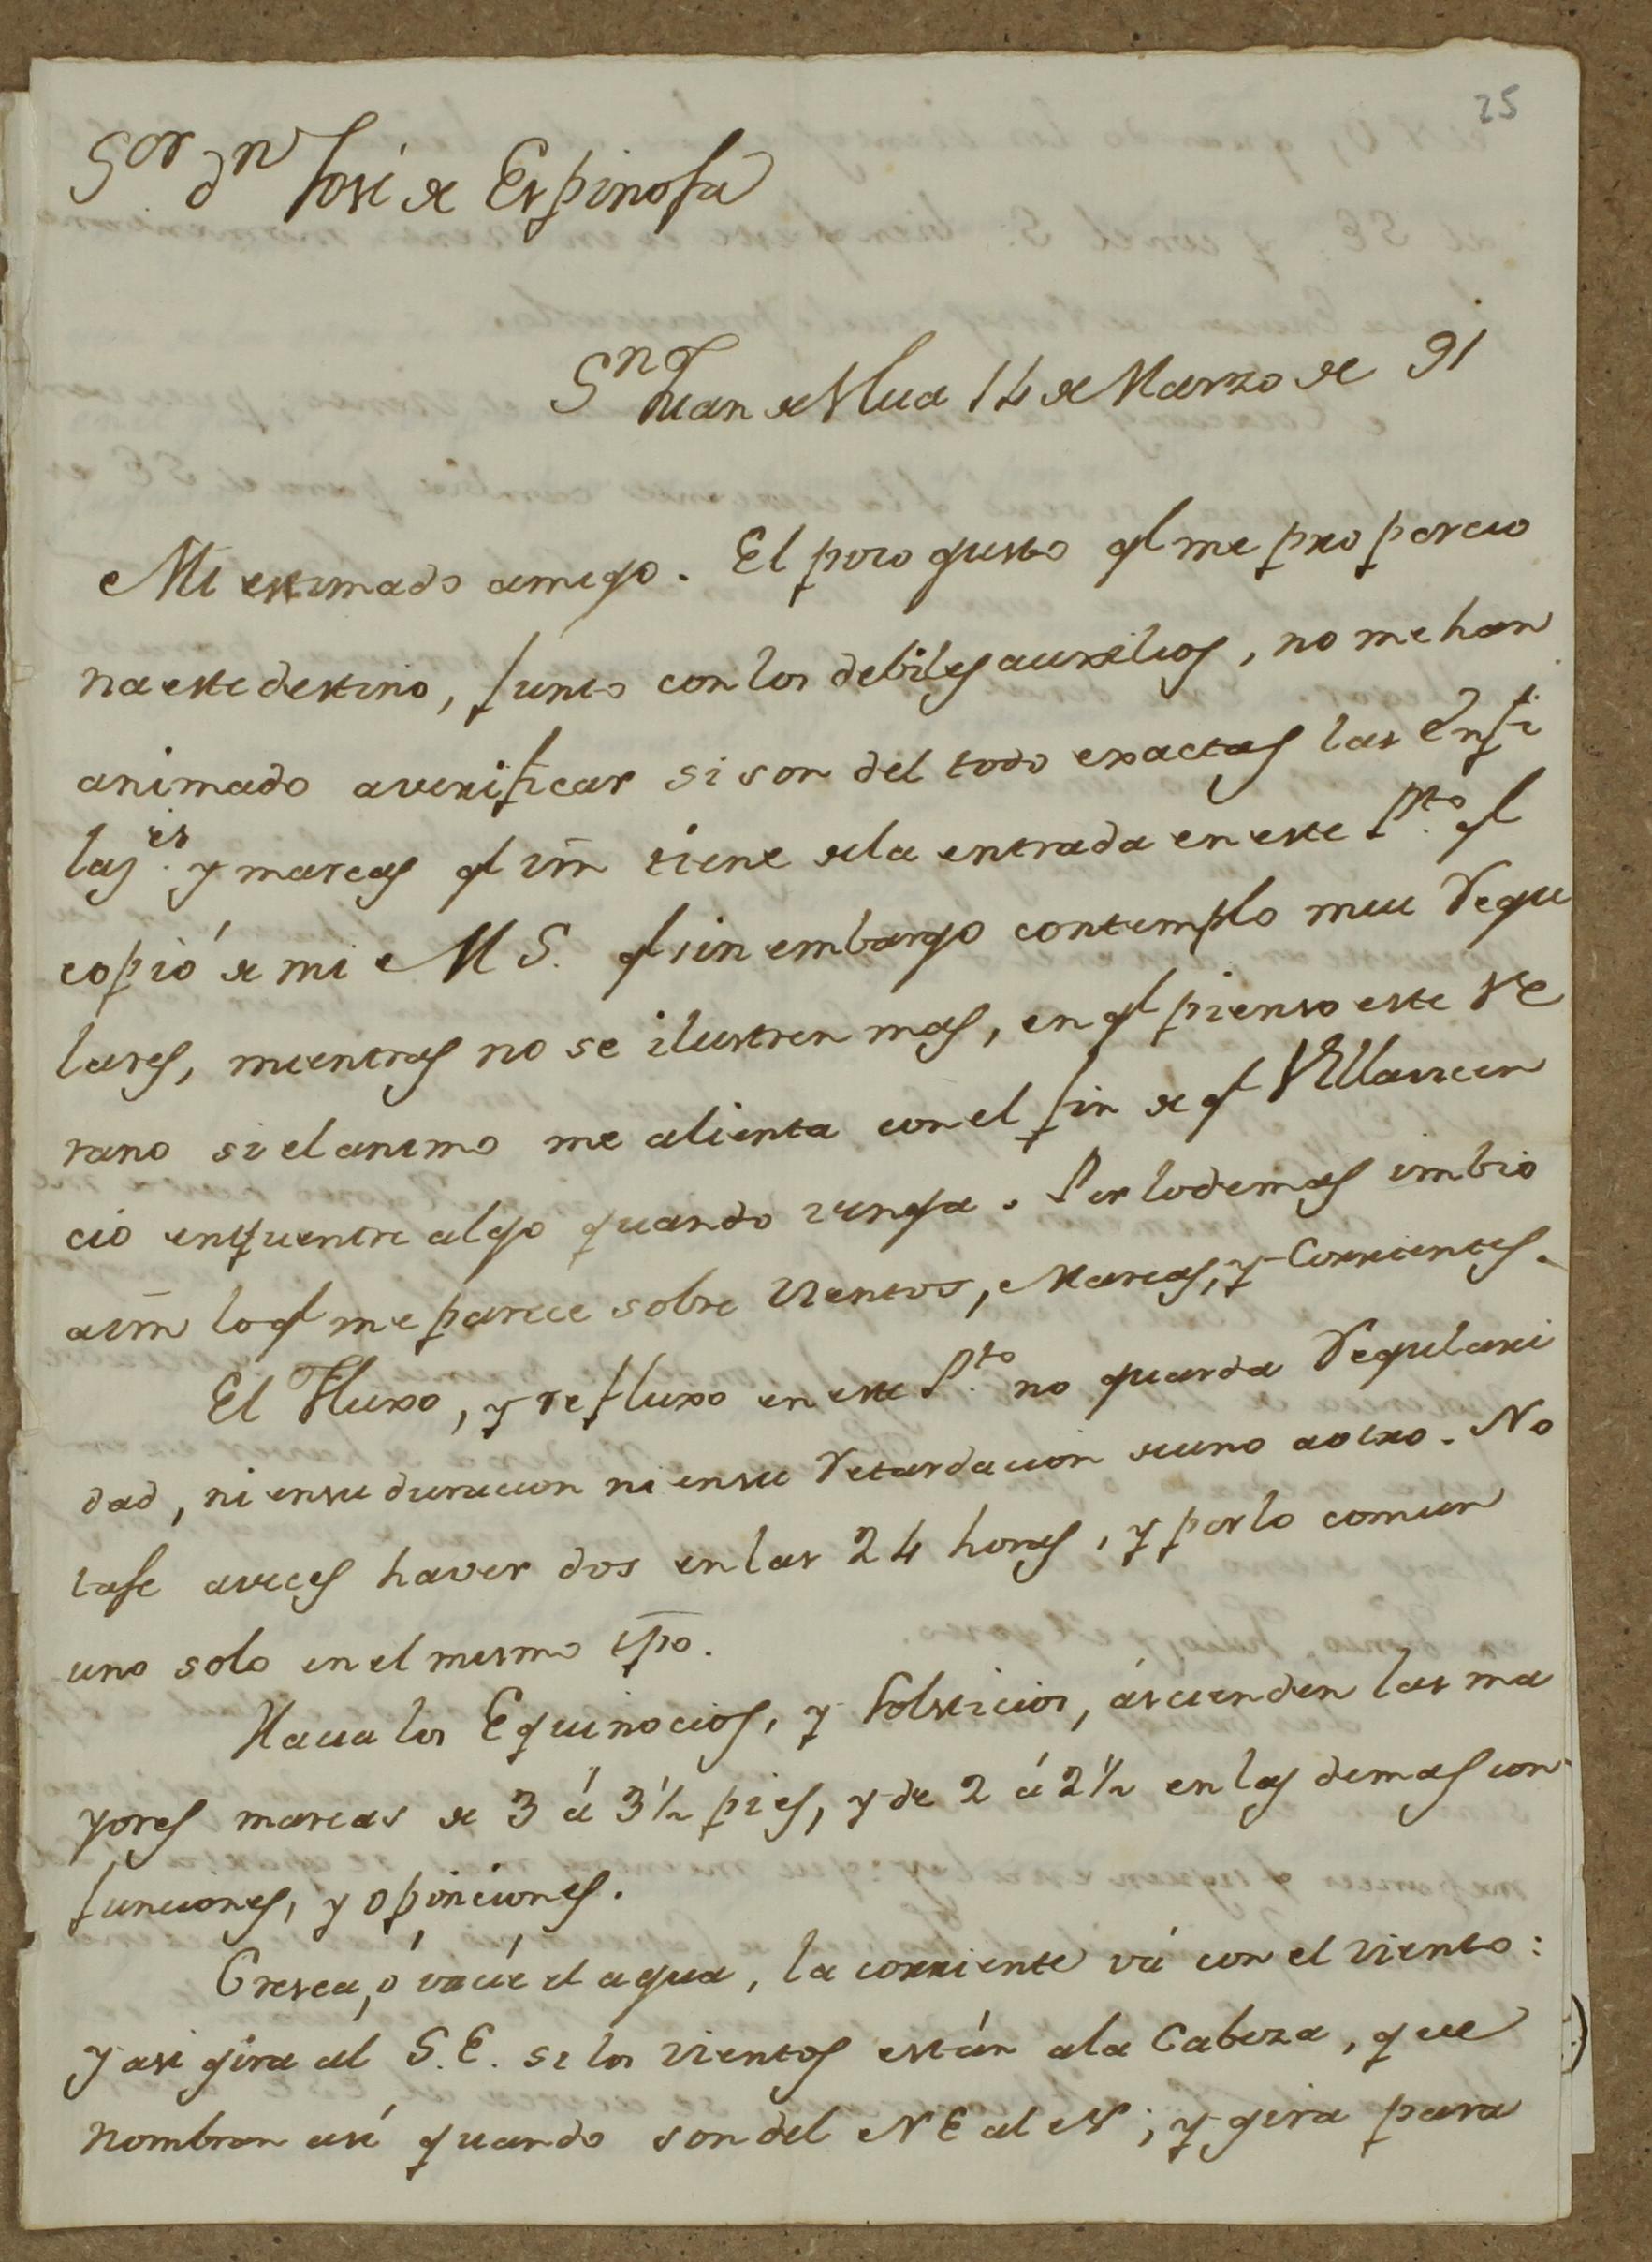 25
Sor dn José de Espinosa
Sn Juan de Ulua 14 de Marzo de 91
Mi estimado amigo. El poco gusto q.e me proporcio
na este destino, junto con los debiles auxilios, no me han
animado a verificar si son del todo exactas las Enfi
las.es y mareas q.e vm tiene de la entrada en este P.to q.e
copió de mi M S. q.e sin embargo contemplo mui Regu
lares, mientras no se ilustren mas, en q.e pienso este Ve
rano si el animo me alienta con el fin de q.e Villavicen
cio enquentre algo quando venga. Por lo demas imbio
a vm lo q.e me parece sobre Vientos, Mareas, y Corrientes.
El Fluxo, y refluxo en este P.to no guarda Regulari
dad, ni en su duracion ni en su Retardacion de uno a otro. No
tase aveces haver dos en las 24 horas, y por lo comun
uno solo en el mismo tpo.
Hacia los Equinocios, y Solsticios, áscienden las ma
yores mareas de 3 á 3 1/2 pies, y de 2 á 2 1/2 en las demas con
junciones, y opiniciones.
Cresca, ó vacíe el agua, la corriente vá con el viento:
y asi gira al S.E. si los vientos están a la Cabeza, que
nombran así quando son del NE al N; y gira para